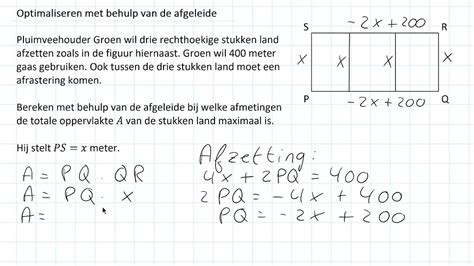 Optimaliseren met behulp van de afgeleide
Pluimveehouder Groen wil drie rechthoekige stukken land
afzetten zoals in de figuur hiernaast. Groen wil 400 meter
gaas gebruiken. Ook tussen de drie stukken land moet een
afrastering komen.
Bereken met behulp van de afgeleide bij welke afmetingen
de totale oppervlakte A van de stukken land maximaal is.
Hij stelt PS = x meter.
A = PQ · QR
A = PQ · x
A =
-2x+200
S R
x x x x
P Q
-2x+200
Afzetting:
4x + 2PQ = 400
2PQ = -4x + 400
PQ = -2x + 200